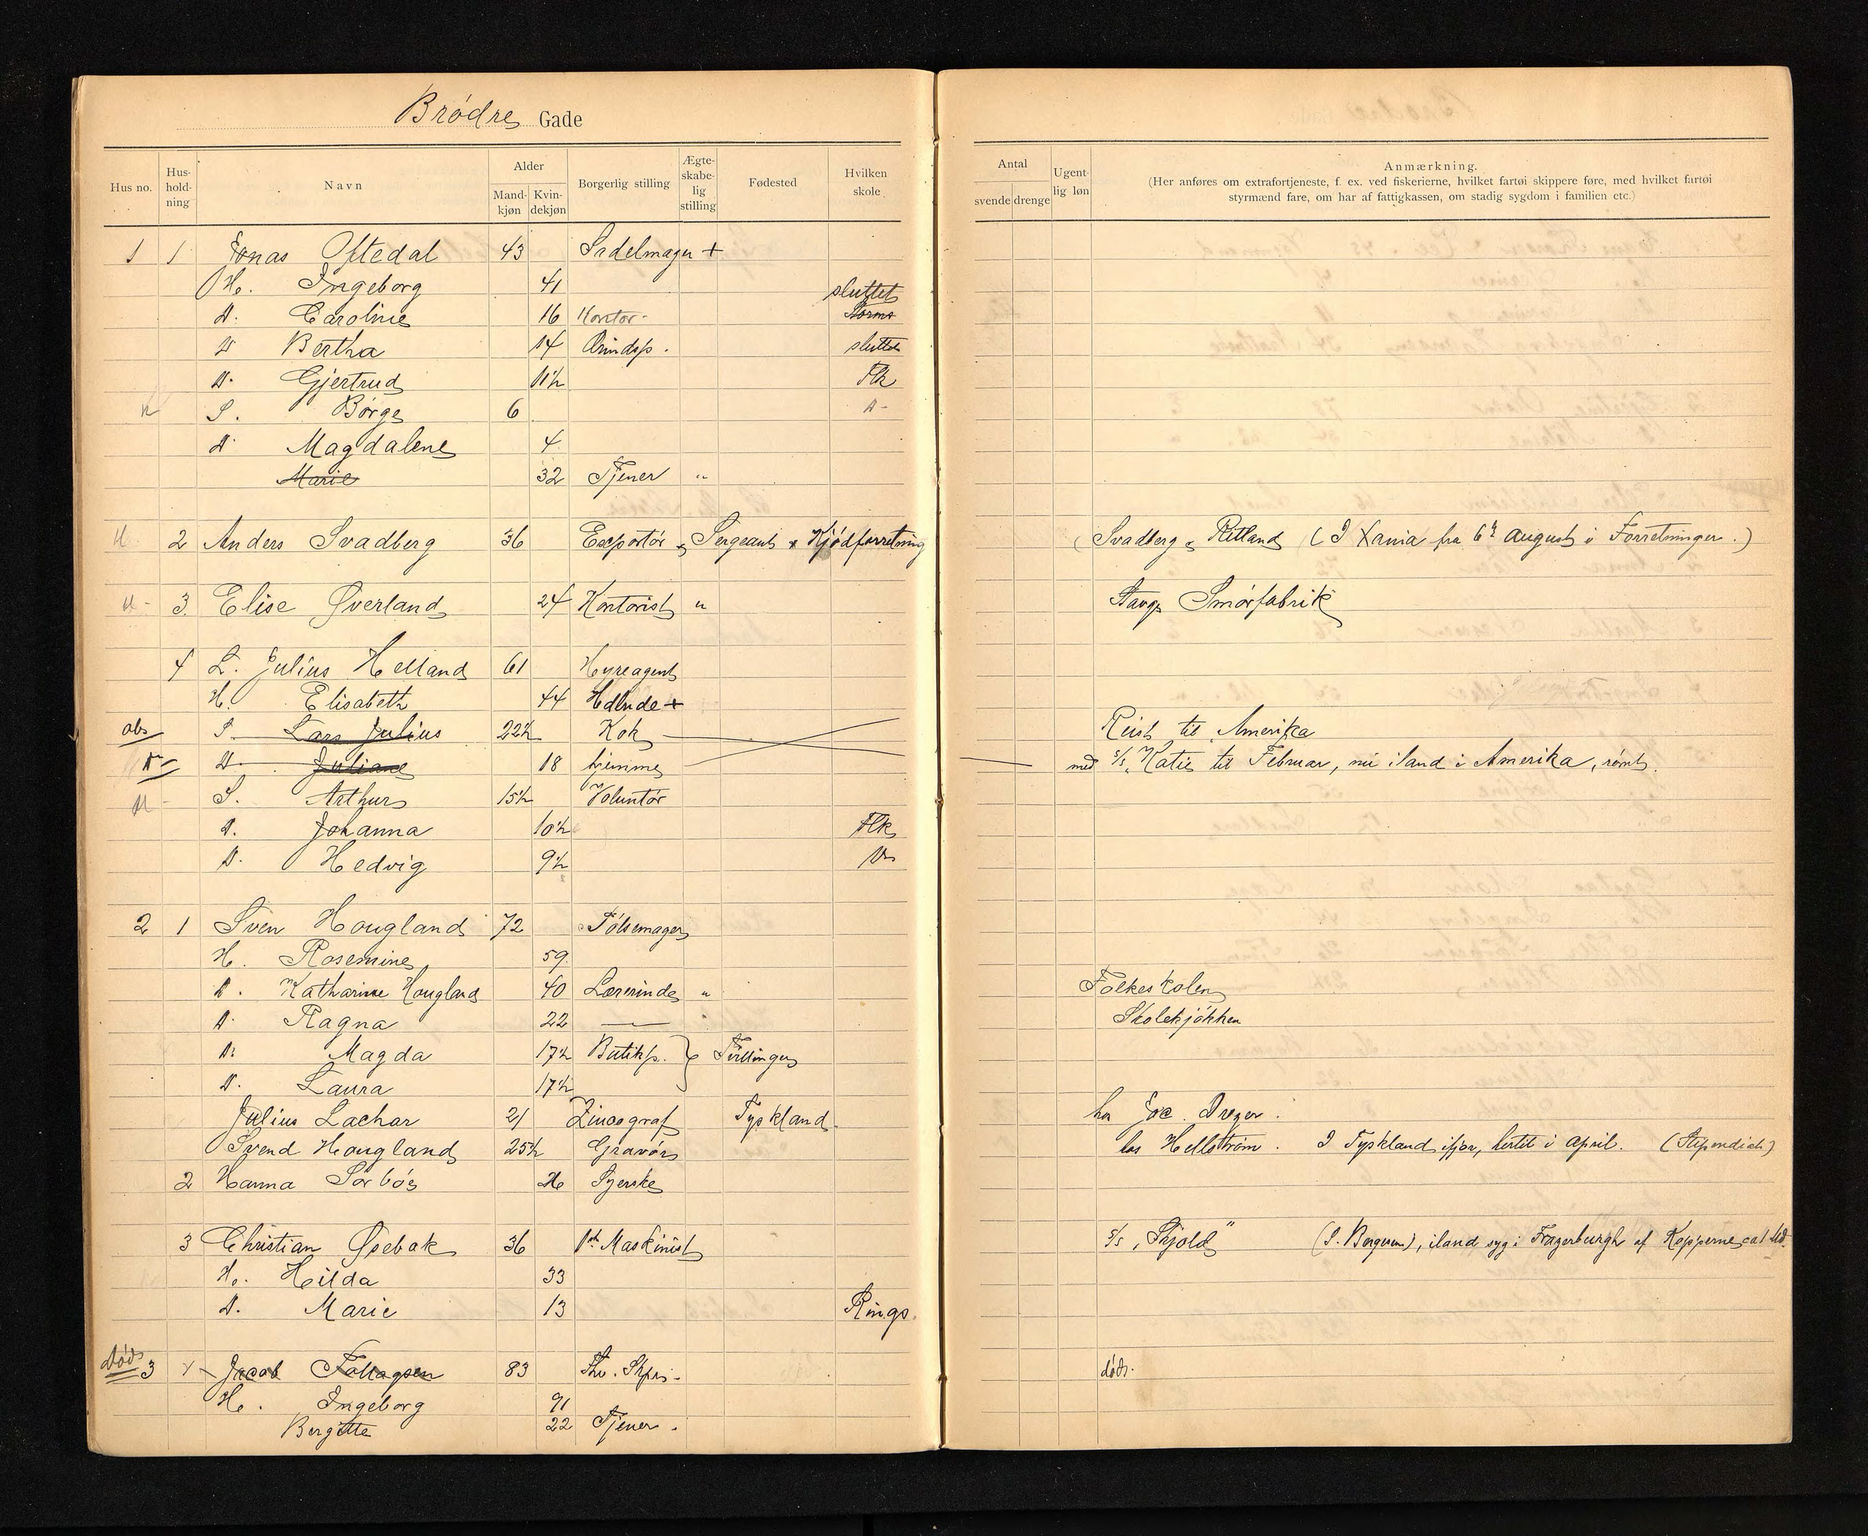 Brødre Gade
Hus no. Hus-hold-ning Navn Alder Mand-kjøn Kvin-dekjøn Borgerlig stilling Ægte-skabe-lig stilling Fødested Hvilken skole
1 1 Jonas Oftedal 43 Sadelmager +
H. Ingeborg 41 sluttet
D. Caroline 16 Kontor-
D Bertha 14 sluttet
D. Gjertrud 11½ Flk
S. Børge 6
D Magdalene 4
Marie 32 Tjener "
2 Anders Svadberg 36 Exportør & Sergeant x Kjødforretning
3. Elise Øverland 24 Kontorist "
4 L. Julius Helland 61 Hyreagent
H. Elisabeth 44 +
obs S. Lars Julius 22½ Kok
D. Juliane 18 hjemme
S. Arthur 15½ Voluntør
D. Johanna 10½ Flk
D. Hedvig 9½
2 1 Sven Hougland 72 Pølsemager
H. Rosemine 59
D. Katharine Hougland 40 Lærerinde "
D. Ragna 22 —
D. Magda 17½ Butikp. } Tvillinger
D. Laura 17½
Julius Lachar 21 Zincograf Tyskland
Svend Hougland 25½ Gravør
2 Hanna Sørbøe Syerske
3 Christian Øsebak 36 1st Maskinist
H. Hilda 33
D. Marie 13 Rings.
død 3 Jacob 83
H. Ingeborg
Bergitte 22 Tjener.
Antal svende drenge Ugent-lig løn Anmærkning.
(Her anføres om extrafortjeneste, f. ex. ved fiskerierne, hvilket fartøi skippere føre, med hvilket fartøi
styrmænd fare, om har af fattigkassen, om stadig sygdom i familien etc.)
(Svadberg & Ritland (I Xania fra 6te august i Forretninger.)
Stavgr Smørfabrik
Reist til Amerika
med s/s "Katie til Februar, nu iland i Amerika, rømt.
Folkeskolen
Skolekjøkken
hos Joc. Dreyer.
hos Hellstrøm. I Tyskland ifjor, hertil i april. (Stipendiet)
s/s "Skjold" (S. Bergesen), iland syg i Frazerburgh af Kopperne
død.